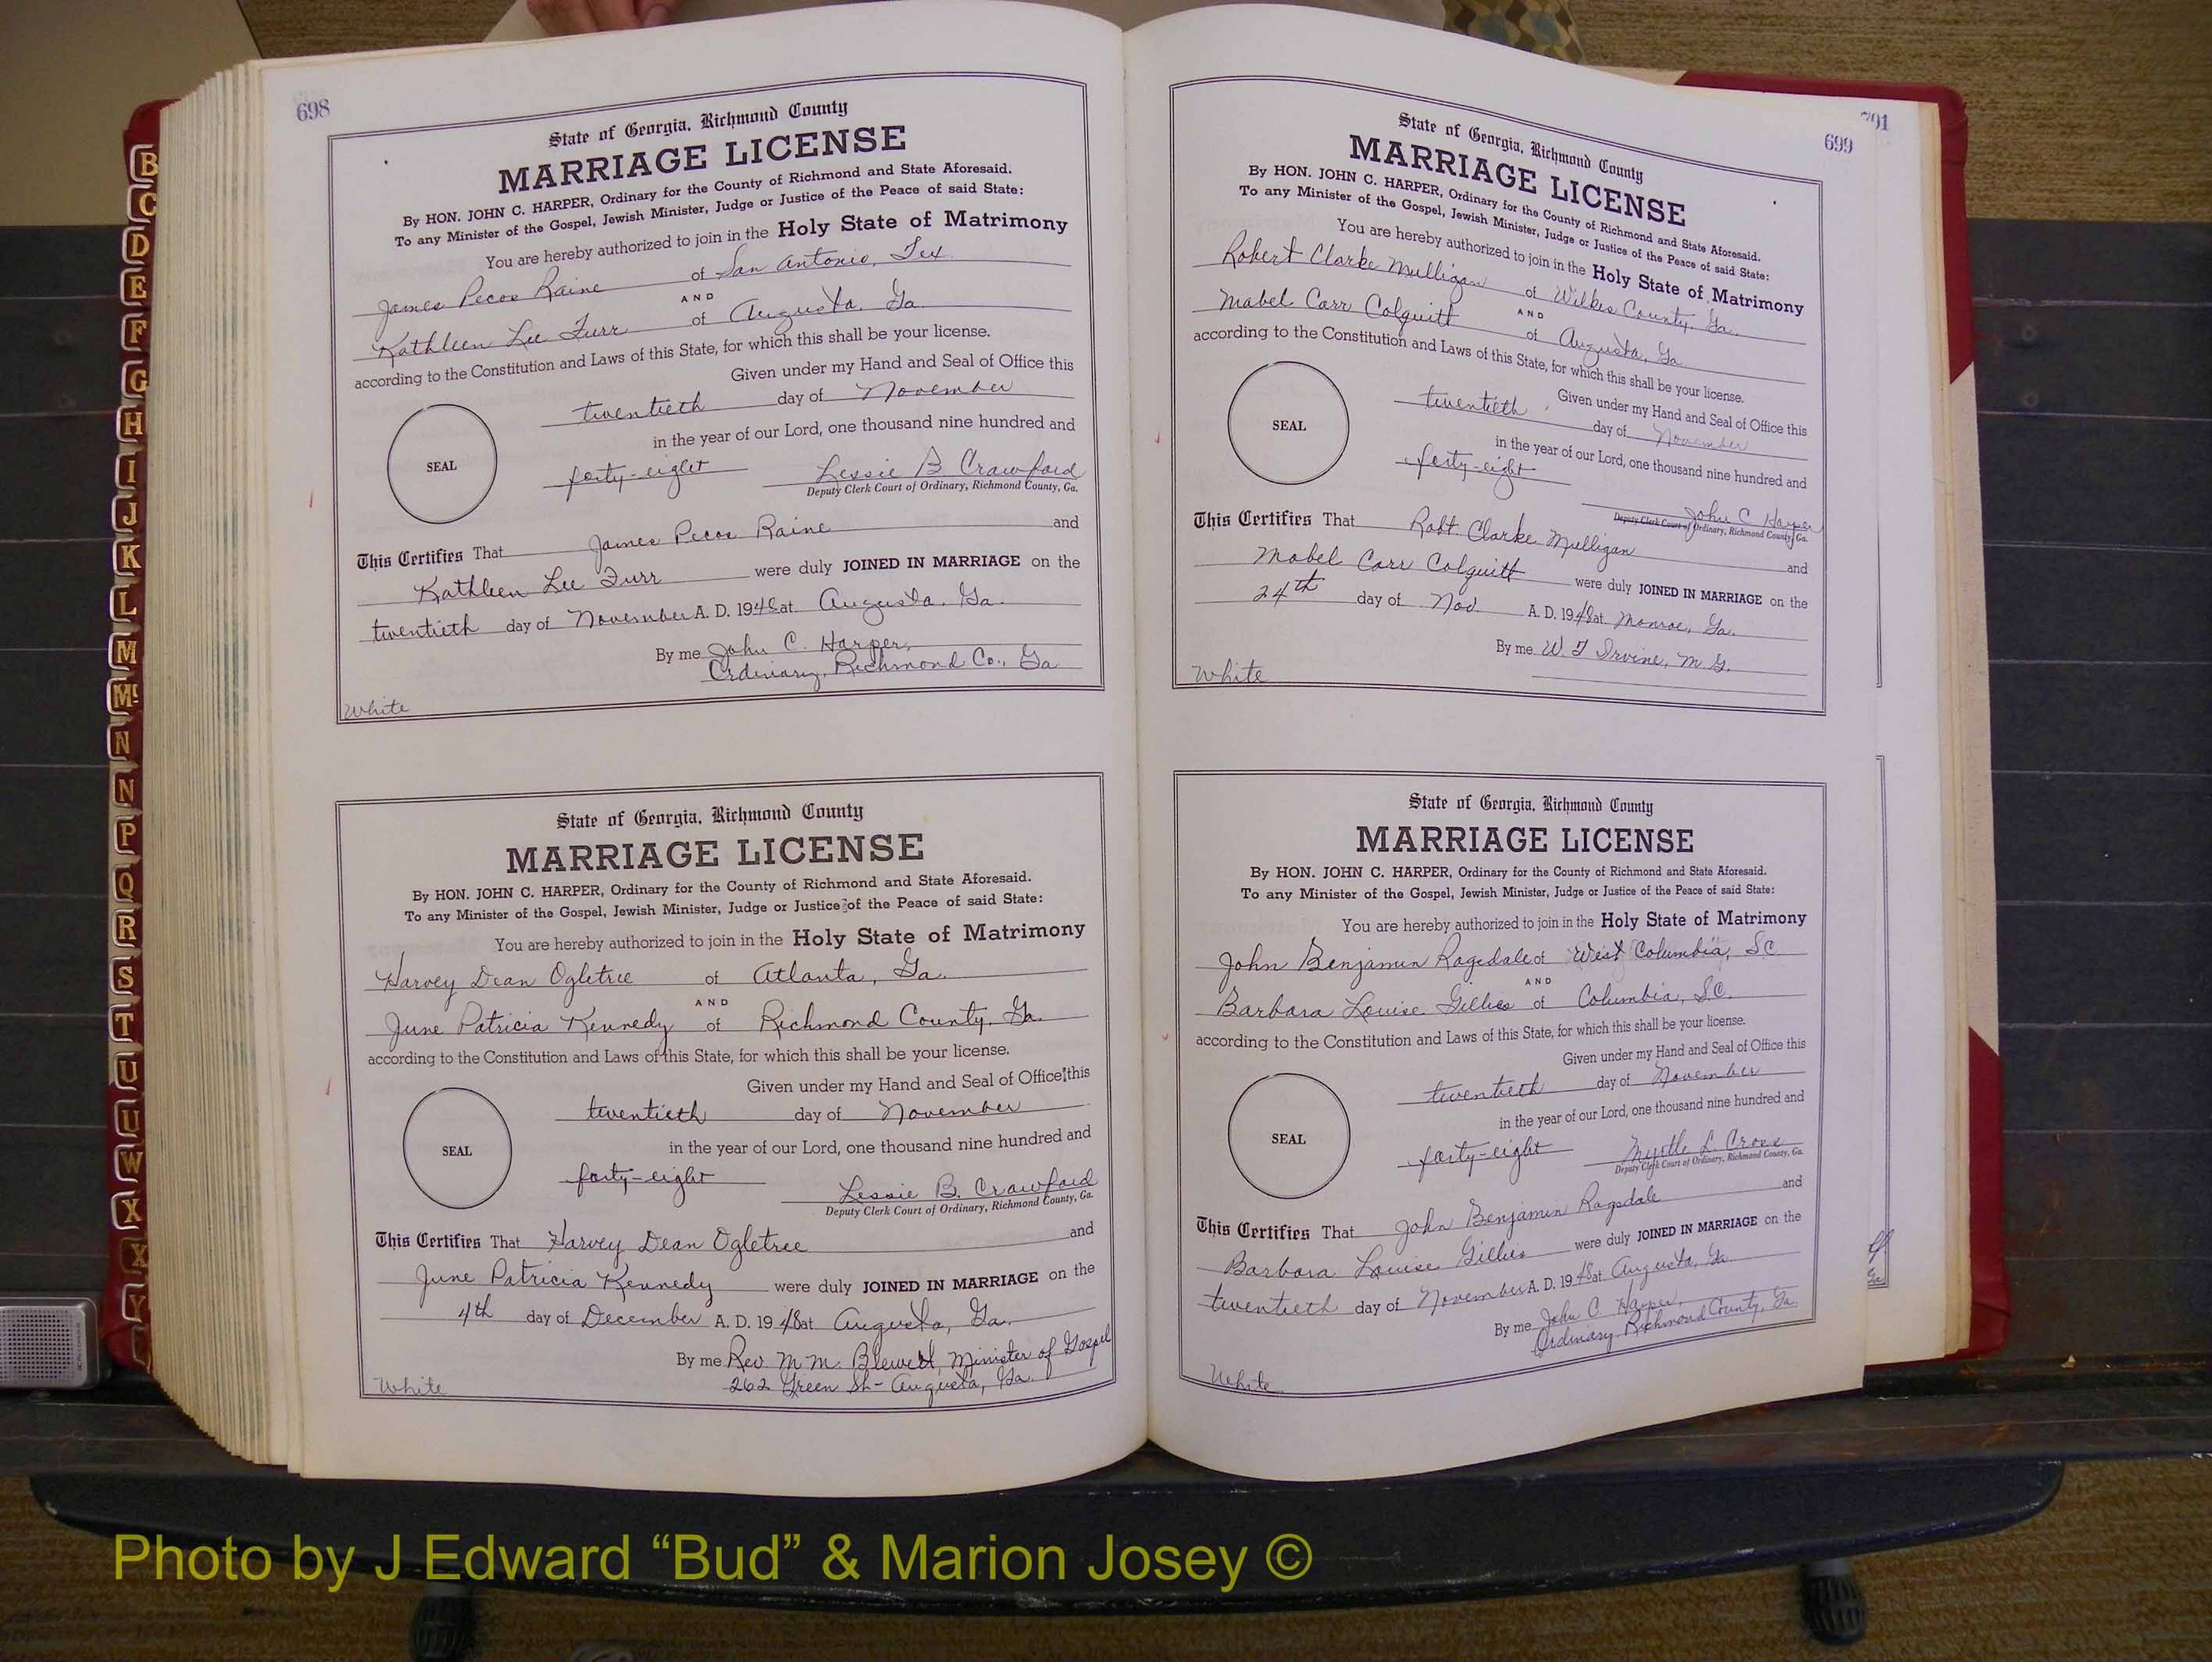 698
State of Georgia, Richmond County
MARRIAGE LICENSE
By HON. JOHN C. HARPER, Ordinary for the County of Richmond and State Aforesaid.
To any Minister of the Gospel, Jewish Minister, Judge or Justice of the Peace of said State:
You are hereby authorized to join in the Holy State of Matrimony
James Pecos Raine of San Antonio, Tex.
AND
Kathleen Lee Furr of Augusta, Ga.
according to the Constitution and Laws of this State, for which this shall be your license.
Given under my Hand and Seal of Office this
twentieth day of November
in the year of our Lord, one thousand nine hundred and
SEAL
forty-eight Lessie B Crawford
Deputy Clerk Court of Ordinary, Richmond County, Ga.
This Certifies That James Pecos Raine and
Kathleen Lee Furr were duly JOINED IN MARRIAGE on the
twentieth day of November A. D. 1948 at Augusta, Ga.
By me John C. Harper,
Ordinary, Richmond Co., Ga
White
State of Georgia, Richmond County
MARRIAGE LICENSE
By HON. JOHN C. HARPER, Ordinary for the County of Richmond and State Aforesaid.
To any Minister of the Gospel, Jewish Minister, Judge or Justice of the Peace of said State:
You are hereby authorized to join in the Holy State of Matrimony
Harvey Dean Ogletree of Atlanta, Ga.
AND
June Patricia Kennedy of Richmond County, Ga.
according to the Constitution and Laws of this State, for which this shall be your license.
Given under my Hand and Seal of Office this
twentieth day of November
in the year of our Lord, one thousand nine hundred and
SEAL
forty-eight Lessie B. Crawford
Deputy Clerk Court of Ordinary, Richmond County, Ga.
This Certifies That Harvey Dean Ogletree and
June Patricia Kennedy were duly JOINED IN MARRIAGE on the
4th day of December A. D. 1948 at Augusta, Ga.
By me Rev. M. M. Blewett, Minister of Gospel
262 Green St - Augusta, Ga.
White
701
699
State of Georgia, Richmond County
MARRIAGE LICENSE
By HON. JOHN C. HARPER, Ordinary for the County of Richmond and State Aforesaid.
To any Minister of the Gospel, Jewish Minister, Judge or Justice of the Peace of said State:
You are hereby authorized to join in the Holy State of Matrimony
Robert Clarke Mulligan of Wilkes County, Ga.
AND
Mabel Carr Colquitt of Augusta, Ga.
according to the Constitution and Laws of this State, for which this shall be your license.
Given under my Hand and Seal of Office this
twentieth day of November
in the year of our Lord, one thousand nine hundred and
SEAL
forty-eight John C Harper
Deputy Clerk Court of Ordinary, Richmond County, Ga.
This Certifies That Robt. Clarke Mulligan and
Mabel Carr Colquitt were duly JOINED IN MARRIAGE on the
24th day of Nov A. D. 1948 at Monroe, Ga.
By me W. T Irvine, M. G.
White
State of Georgia, Richmond County
MARRIAGE LICENSE
By HON. JOHN C. HARPER, Ordinary for the County of Richmond and State Aforesaid.
To any Minister of the Gospel, Jewish Minister, Judge or Justice of the Peace of said State:
You are hereby authorized to join in the Holy State of Matrimony
John Benjamin Ragsdale of West Columbia, SC
AND
Barbara Louise Gillies of Columbia, SC.
according to the Constitution and Laws of this State, for which this shall be your license.
Given under my Hand and Seal of Office this
twentieth day of November
in the year of our Lord, one thousand nine hundred and
SEAL
forty-eight Myrtle L. Cross
Deputy Clerk Court of Ordinary, Richmond County, Ga.
This Certifies That John Benjamin Ragsdale and
Barbara Louise Gillies were duly JOINED IN MARRIAGE on the
twentieth day of November A. D. 1948 at Augusta, Ga
By me John C. Harper,
Ordinary, Richmond County, Ga.
White
B
C
D
E
F
G
H
I
J
K
L
M
Mc
N
N
P
Q
R
S
T
U
U
W
X
X
Y
Photo by J Edward “Bud” & Marion Josey ©